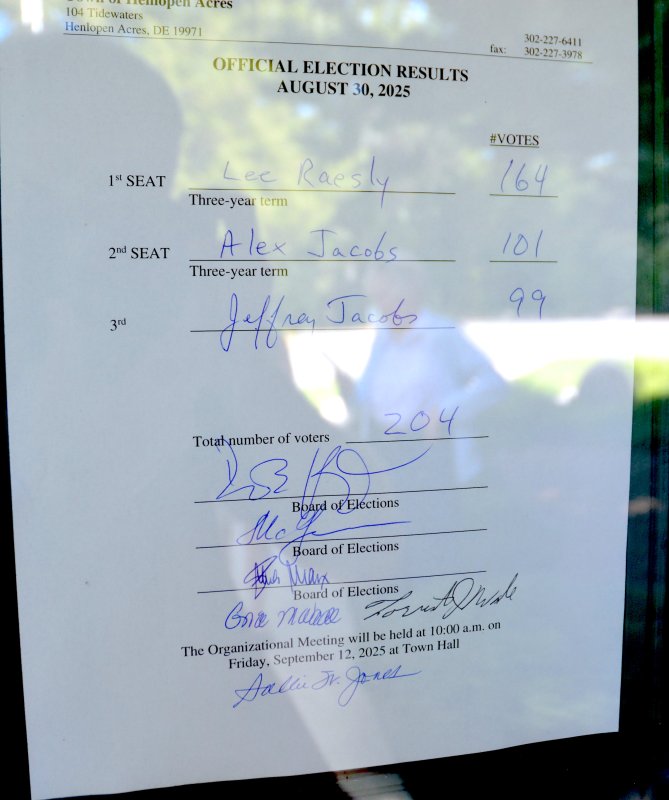 Town of Henlopen Acres
104 Tidewaters
Henlopen Acres, DE 19971
302-227-6411
fax: 302-227-3978
OFFICIAL ELECTION RESULTS
AUGUST 30, 2025
#VOTES
1st SEAT Lee Raesly 164
Three-year term
2nd SEAT Alex Jacobs 101
Three-year term
3rd Jeffrey Jacobs 99
Total number of voters 204
Board of Elections
Board of Elections
Board of Elections
The Organizational Meeting will be held at 10:00 a.m. on
Friday, September 12, 2025 at Town Hall
Jones